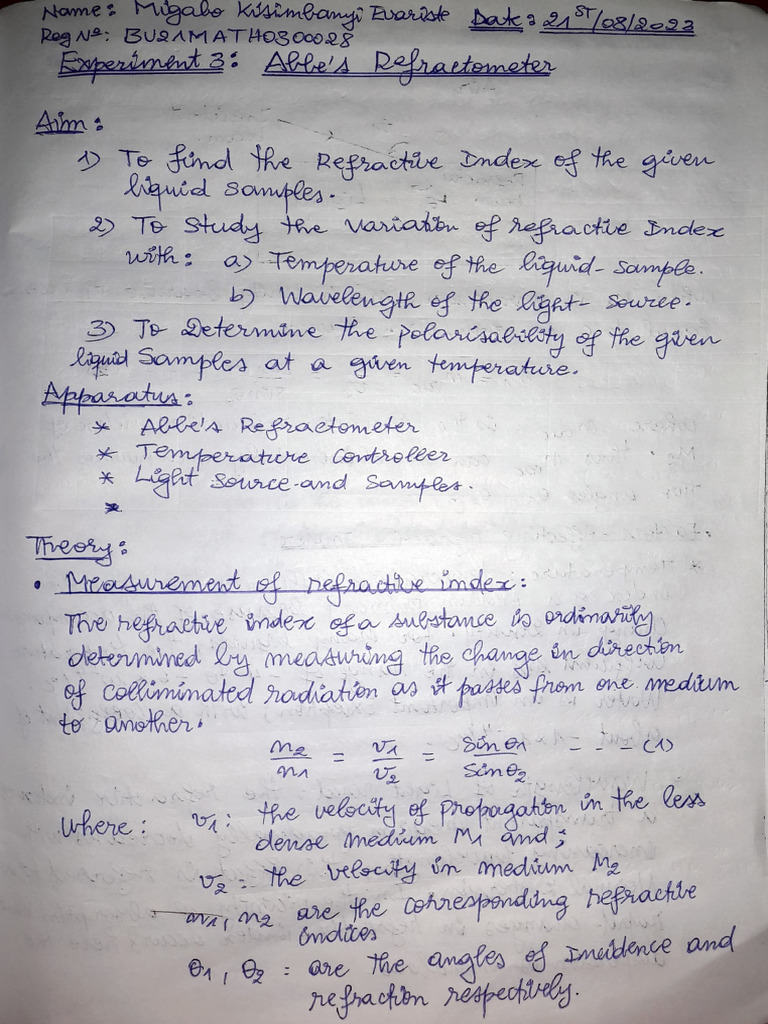 Name: Migabo Kisimbanyi Evariste Date: 21ST/08/2023
Reg No: BU21MATH0300028
Experiment 3: Abbe's Refractometer
Aim:
1) To find the Refractive Index of the given
liquid samples.
2) To study the variation of refractive Index
with: a) Temperature of the liquid-sample.
b) Wavelength of the light-source.
3) To Determine the polarisability of the given
liquid Samples at a given temperature.
Apparatus:
* Abbe's Refractometer
* Temperature Controller
* Light Source and Samples.
*
Theory:
• Measurement of refractive index:
The refractive index of a substance is ordinarily
determined by measuring the change in direction
of colliminated radiation as it passes from one medium
to another.
n2/n1 = v1/v2 = sinθ1/sinθ2 - - - (1)
Where: v1: the velocity of propagation in the less
dense medium M1 and;
v2 = the velocity in medium M2
n1, n2 are the corresponding refractive
indices
θ1, θ2 : are the angles of Incidence and
refraction respectively.